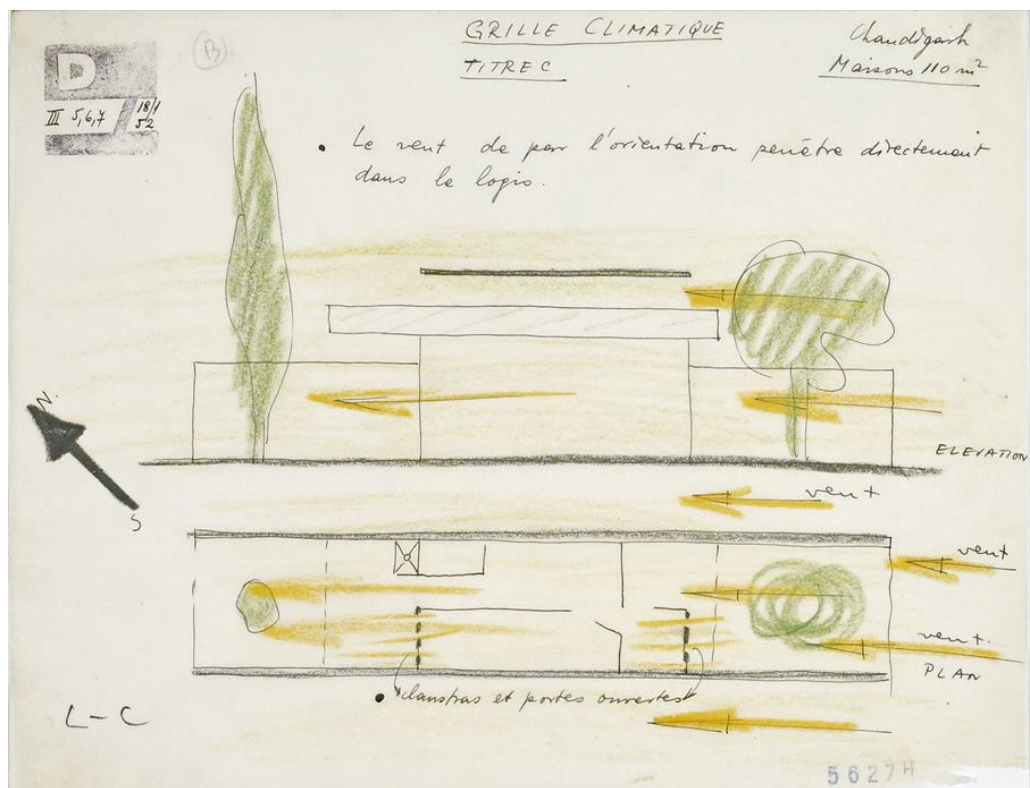 D
III 5,6,7 18/1 52
B
GRILLE CLIMATIQUE
TITRE C
Chandigarh
Maisons 110 m²
• Le vent de par l'orientation penètre directement
dans le logis.
N.
S
ELEVATION
vent
vent
vent.
PLAN
• claustras et portes ouvertes
L-C
5627H